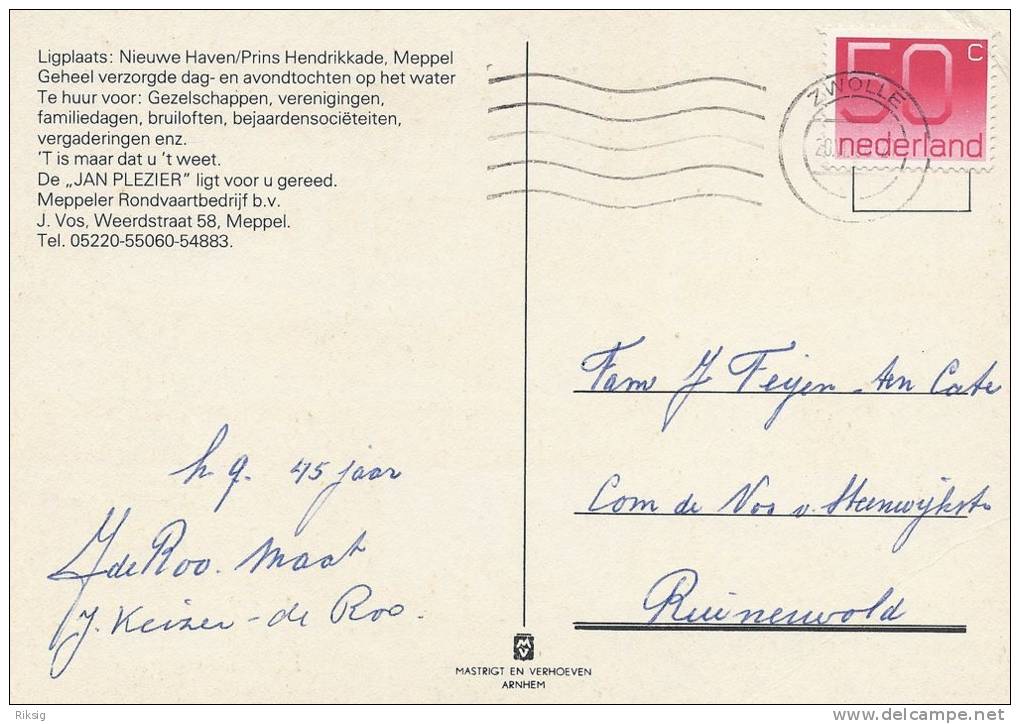 Ligplaats: Nieuwe Haven/Prins Hendrikkade, Meppel
Geheel verzorgde dag- en avondtochten op het water
Te huur voor: Gezelschappen, verenigingen,
familiedagen, bruiloften, bejaardensociëteiten,
vergaderingen enz.
'T is maar dat u 't weet.
De „JAN PLEZIER" ligt voor u gereed.
Meppeler Rondvaartbedrijf b.v.
J. Vos, Weerdstraat 58, Meppel.
Tel. 05220-55060-54883.
h g. 45 jaar
J de Roo. Maat
J. Keizer-de Roo.
MASTRIGT EN VERHOEVEN
ARNHEM
50 c
nederland
ZWOLLE
Fam J Feijen-ten Cate
Com de Vos v. Steenwijkstr
Ruinerwold
Riksig
www.delcampe.net